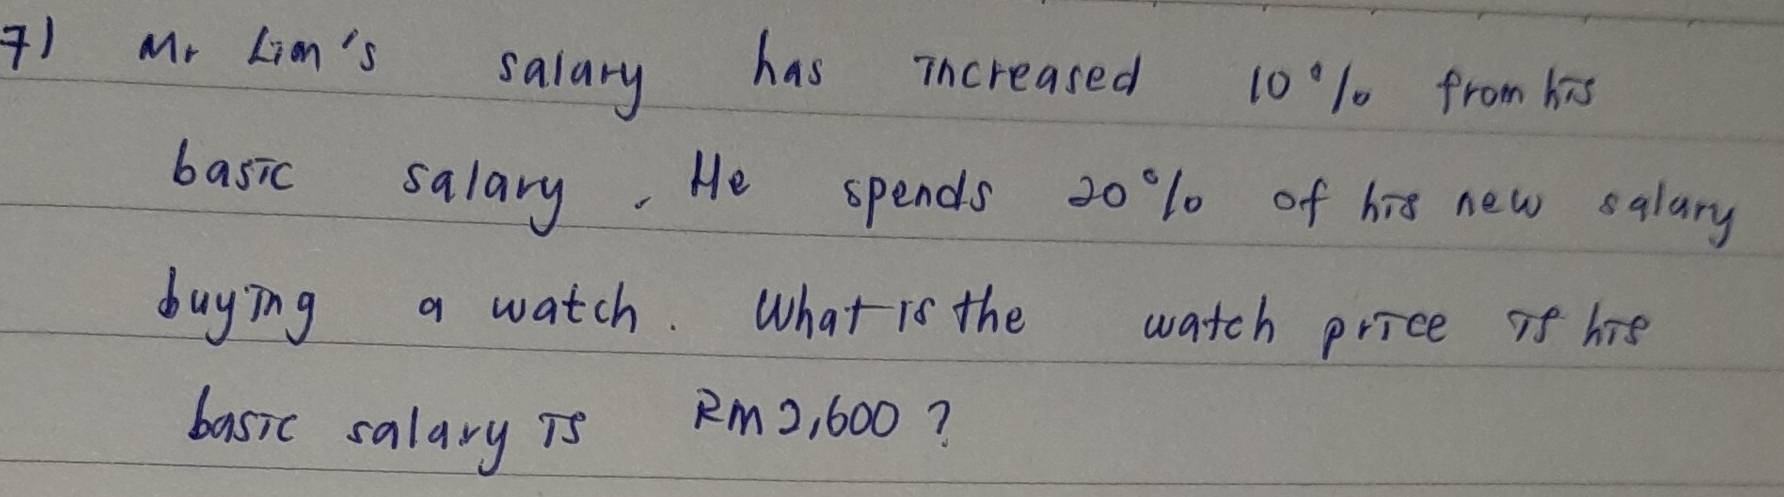 7) Mr Lim's salary has increased 10% from his
basic salary. He spends 20% of his new salary
buying a watch. What is the watch price if his
basic salary is RM 2,600?